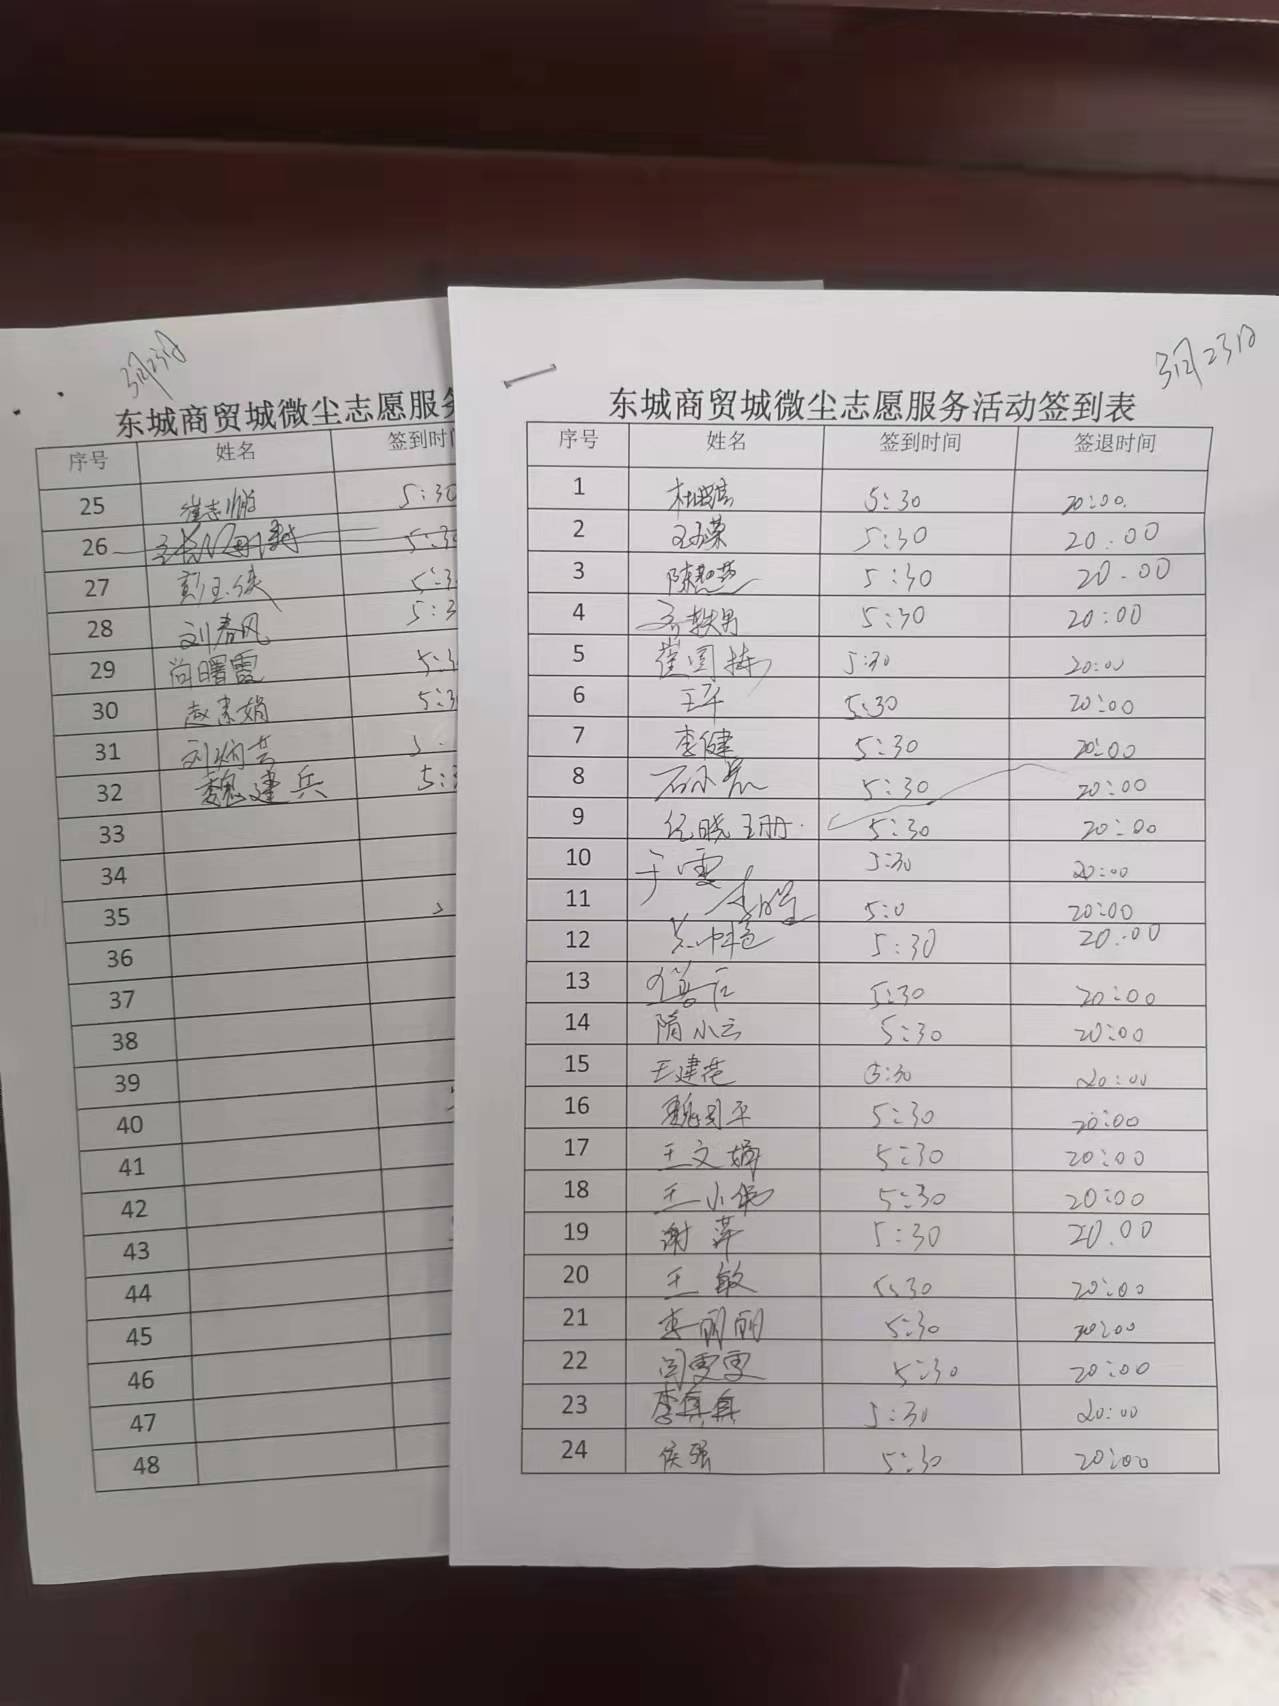 3月23日
东城商贸城微尘志愿服务
序号 姓名 签到时间
25 崔志鹏 5:30
26 5:30
27 彭玉侠 5:3
28 刘春风 5:3
29 尚曙霞 5:3
30 赵素娟 5:3
31 刘炳芸
32 魏建兵 5:3
33
34
35
36
37
38
39
40
41
42
43
44
45
46
47
48
3月23日
东城商贸城微尘志愿服务活动签到表
序号 姓名 签到时间 签退时间
1 5:30 20:00.
2 5:30 20:00
3 5:30 20.00
4 齐轶男 5:30 20:00
5 5:30 20:00
6 王平 5:30 20:00
7 李健 5:30 20:00
8 5:30 20:00
9 纪晓玥 5:30 20:00
10 于雯 5:30 20:00
11 5:0 20:00
12 5:30 20:00
13 5:30 20:00
14 隋小云 5:30 20:00
15 王建苍 5:30 20:00
16 魏利平 5:30 20:00
17 王文娟 5:30 20:00
18 王小伟 5:30 20:00
19 谢萍 5:30 20.00
20 王敏 5:30 20:00
21 李丽丽 5:30 20:00
22 闫雯雯 5:30 20:00
23 李真真 5:30 20:00
24 侯强 5:30 20:00